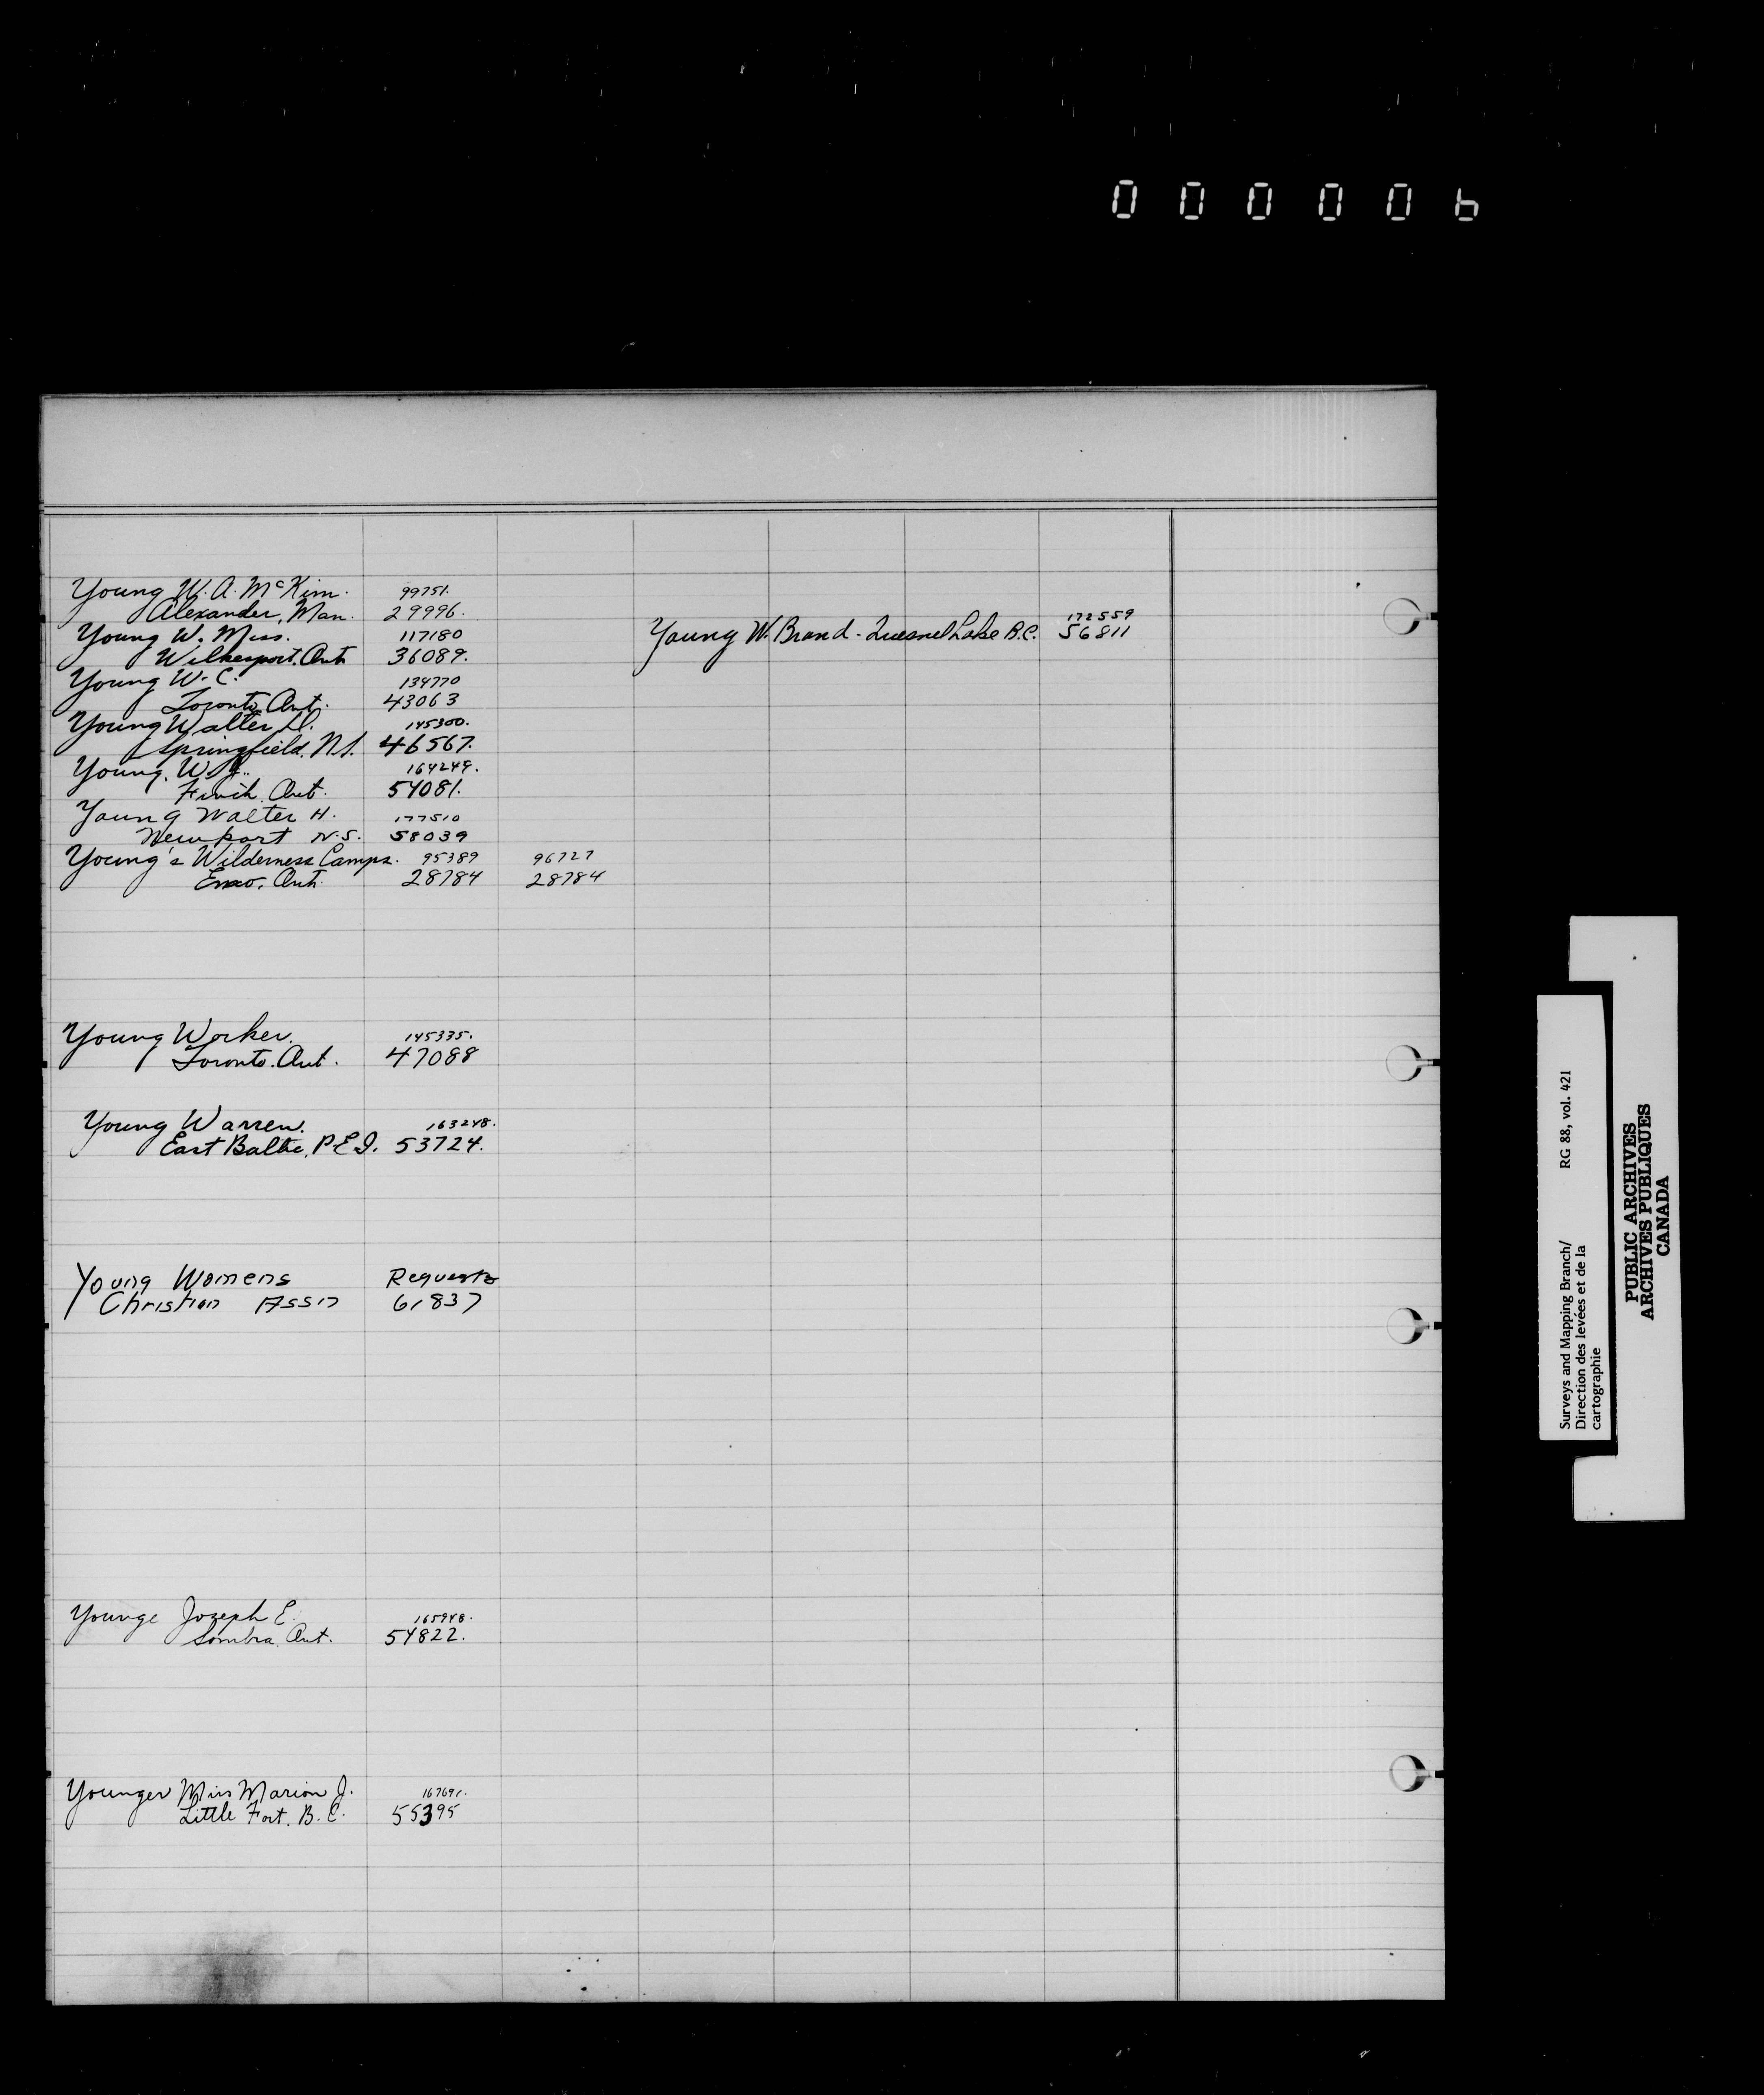 000006
Young W. A. McKim. 99751.
Alexander, Man. 29996.
Young W. Miss. 117180
Wilkesport. Ont 36089.
Young W. C. 134770
Toronto, Ont. 43063
Young Walter D. 145300.
Springfield. N.S. 46567.
Young. W. J. 164249.
Finch. Ont. 54081.
Young Walter H. 177510
Newport N.S. 58039
Young's Wilderness Camps. 95389 96727
Emo, Ont. 28784 28784
172559
Young W. Brand - Quesnel Lake B.C. 56811
Young Worker. 145335.
Toronto. Ont. 47088
Young Warren. 163248.
East Baltic, P.E.I. 53724.
Young Womens Requests
Christian Ass'n 61837
Younge Joseph E. 165948.
Sombra, Ont. 54822.
Younger Miss Marion J. 167691.
Little Fort. B.C. 55395
Surveys and Mapping Branch/ RG 88, vol. 421
Direction des levées et de la
cartographie
PUBLIC ARCHIVES
ARCHIVES PUBLIQUES
CANADA